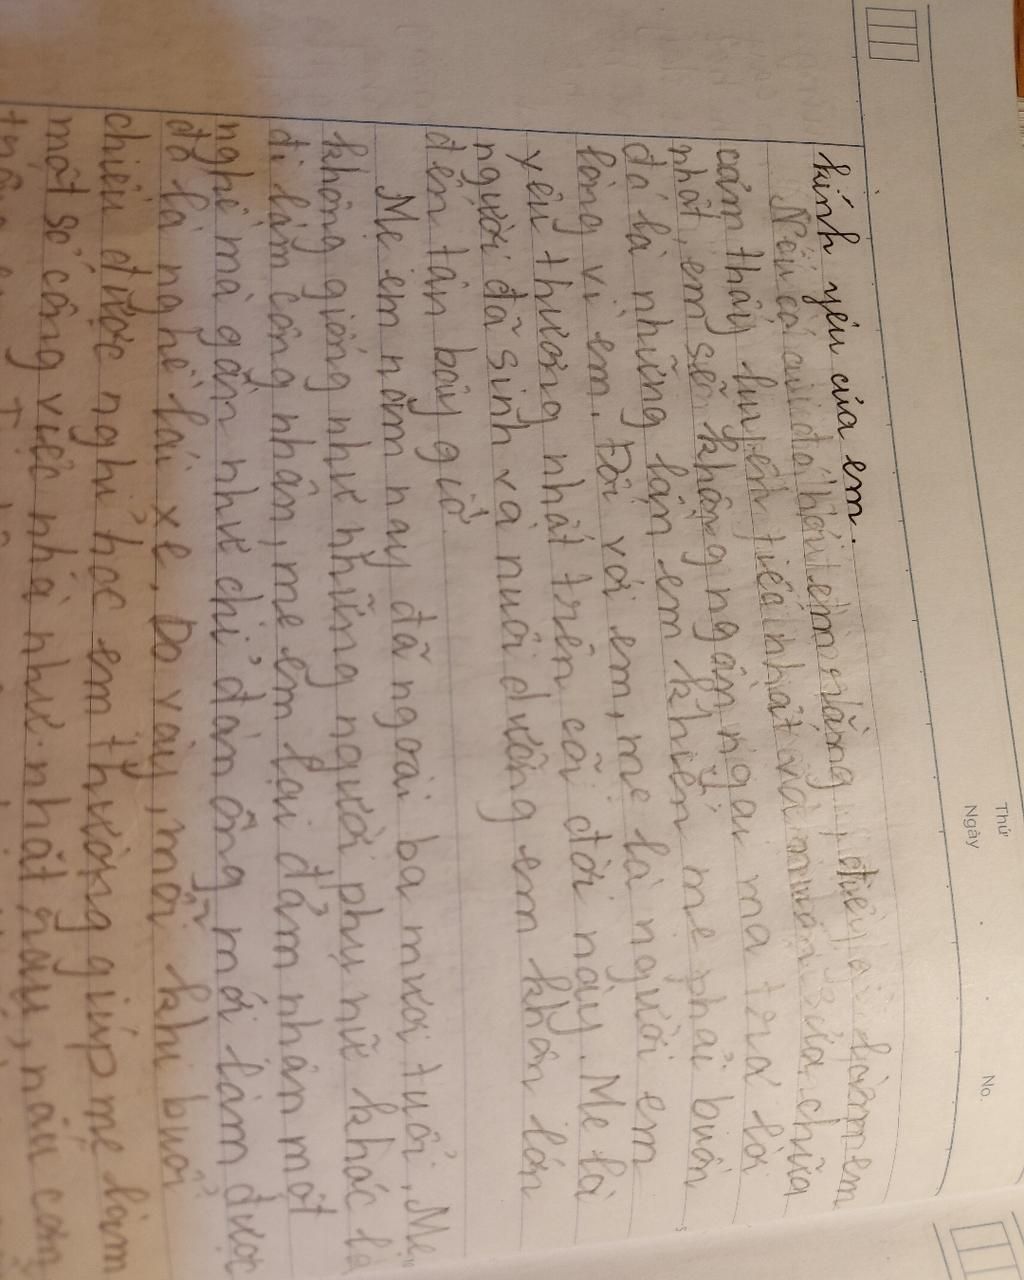 Thứ
Ngày
No.
kính yêu của em.
Nếu có ai đó hỏi em rằng, điều gì làm em
cảm thấy luyến tiếc nhất và muốn sửa chữa
nhất, em sẽ không ngần ngại mà trả lời
đó là những lần em khiến mẹ phải buồn
lòng vì em. Đối với em, mẹ là người em
yêu thương nhất trên cõi đời này. Mẹ là
người đã sinh và nuôi dưỡng em khôn lớn
đến tận bây giờ.
Mẹ em năm nay đã ngoài ba mươi tuổi. Mẹ
không giống như những người phụ nữ khác là
đi làm công nhân, mẹ em lại đảm nhận một
nghề mà gần như chỉ đàn ông mới làm được
đó là nghề lái xe. Do vậy, mỗi khi buổi
chiều được nghỉ học em thường giúp mẹ làm
một số công việc nhà như nhặt rau, nấu cơm